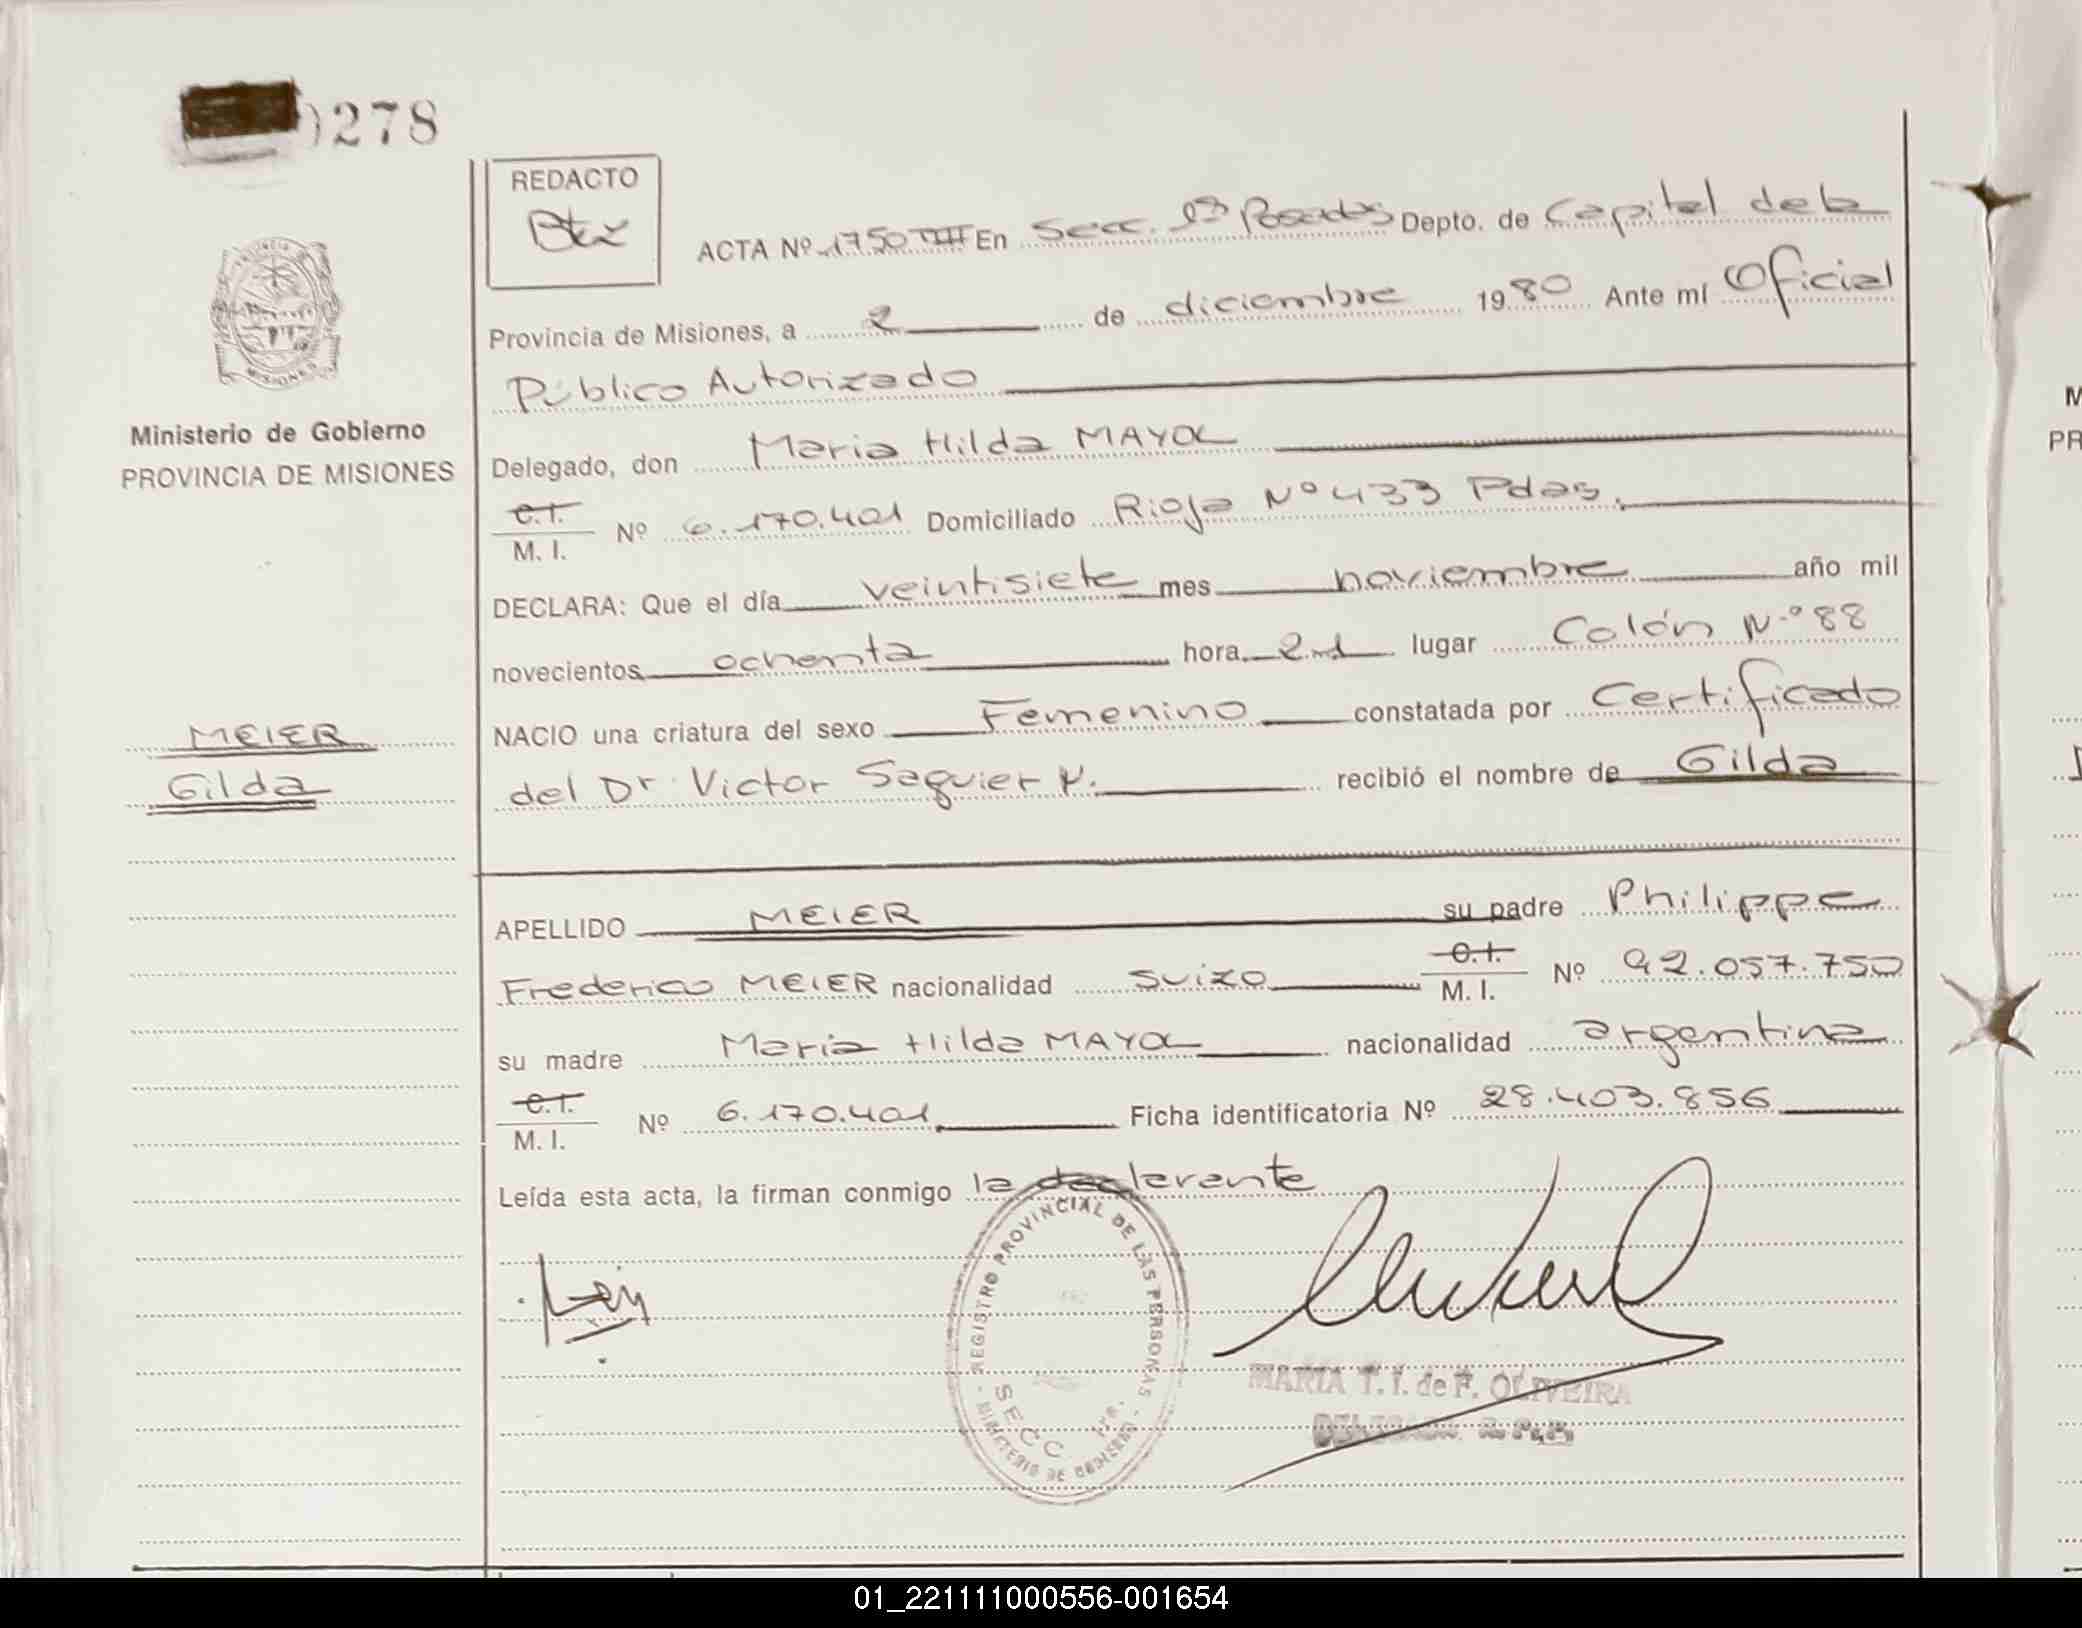 278
REDACTO
ACTA Nº 1750 TIII En Secc. 1ª Posadas Depto. de Capital de la
Provincia de Misiones, a 2 de diciembre 1980 Ante mí Oficial
Público Autorizado
Ministerio de Gobierno
PROVINCIA DE MISIONES
Delegado, don Maria Hilda MAYOL
C.I.
M. I. Nº 6.170.401 Domiciliado Rioja Nº 433 Pdas.
DECLARA: Que el día veintisiete mes noviembre año mil
novecientos ochenta hora 21 lugar Colón N.º 88
MEIER
Gilda
NACIO una criatura del sexo Femenino constatada por Certificado
del Dr Victor Seguier recibió el nombre de Gilda
APELLIDO MEIER su padre Philippe
Frederico MEIER nacionalidad suizo C.I. M. I. Nº 92.057.750
su madre Maria Hilda MAYOL nacionalidad argentina
C.I.
M. I. Nº 6.170.401 Ficha identificatoria Nº 28.403.856
Leída esta acta, la firman conmigo la declarante
REGISTRO PROVINCIAL DE LAS PERSONAS
SECC 1ra.
MINISTERIO DE GOBIERNO
MARIA T. I. de F. OLIVEIRA
DELEGADA R. P. P.
M
PR
01_221111000556-001654